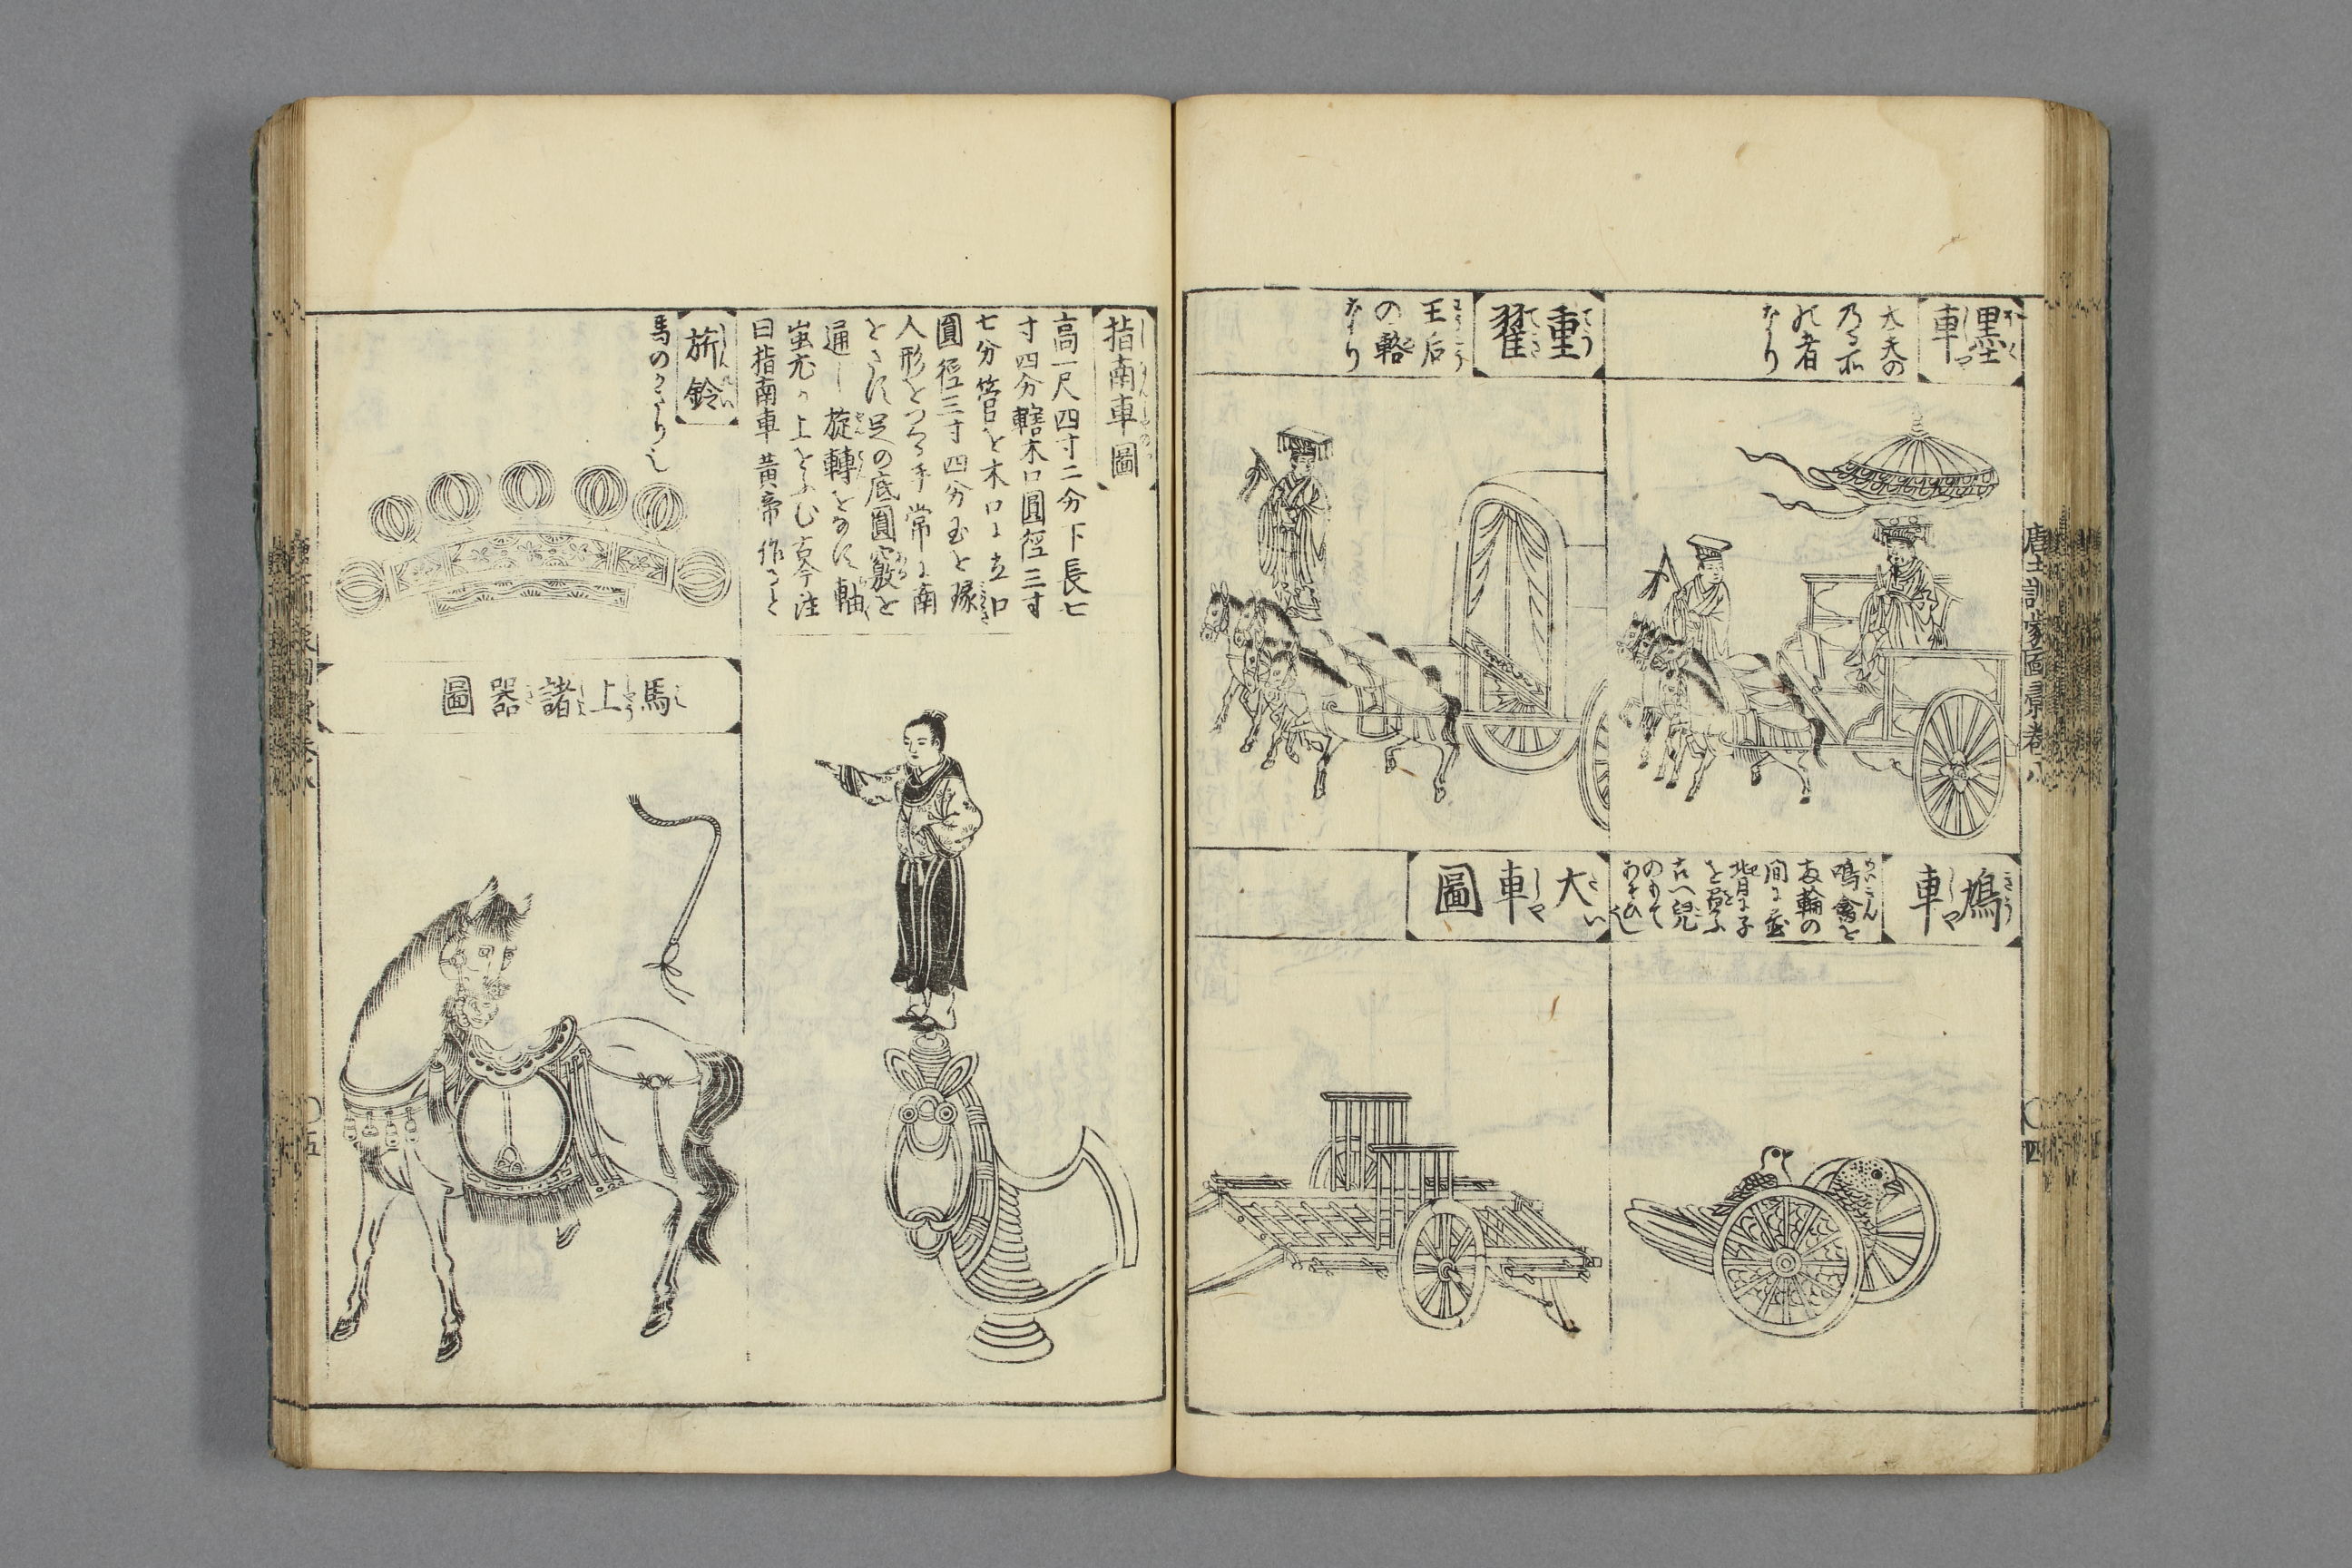 墨車
大夫の
乃る所
の者
なり
重翟
王后
の輅
なり
鳩車
鳴禽を
両輪の
間に並
背に子
を負ふ
古へ兒
のもて
あそび
大車圖
唐土訓蒙圖彙巻八
〇四
指南車圖
高一尺四寸二分下長七
寸四分轄木口圓徑三寸
七分管を木口に立口
圓徑三寸四分玉を琢
人形をつくる手常に南
をさす足の底圓竅を
通し旋轉をなす軸
蚩尤の上をふむ古今注
曰指南車黄帝作ると
旂鈴
馬のかさり也
馬上諸器圖
〇五